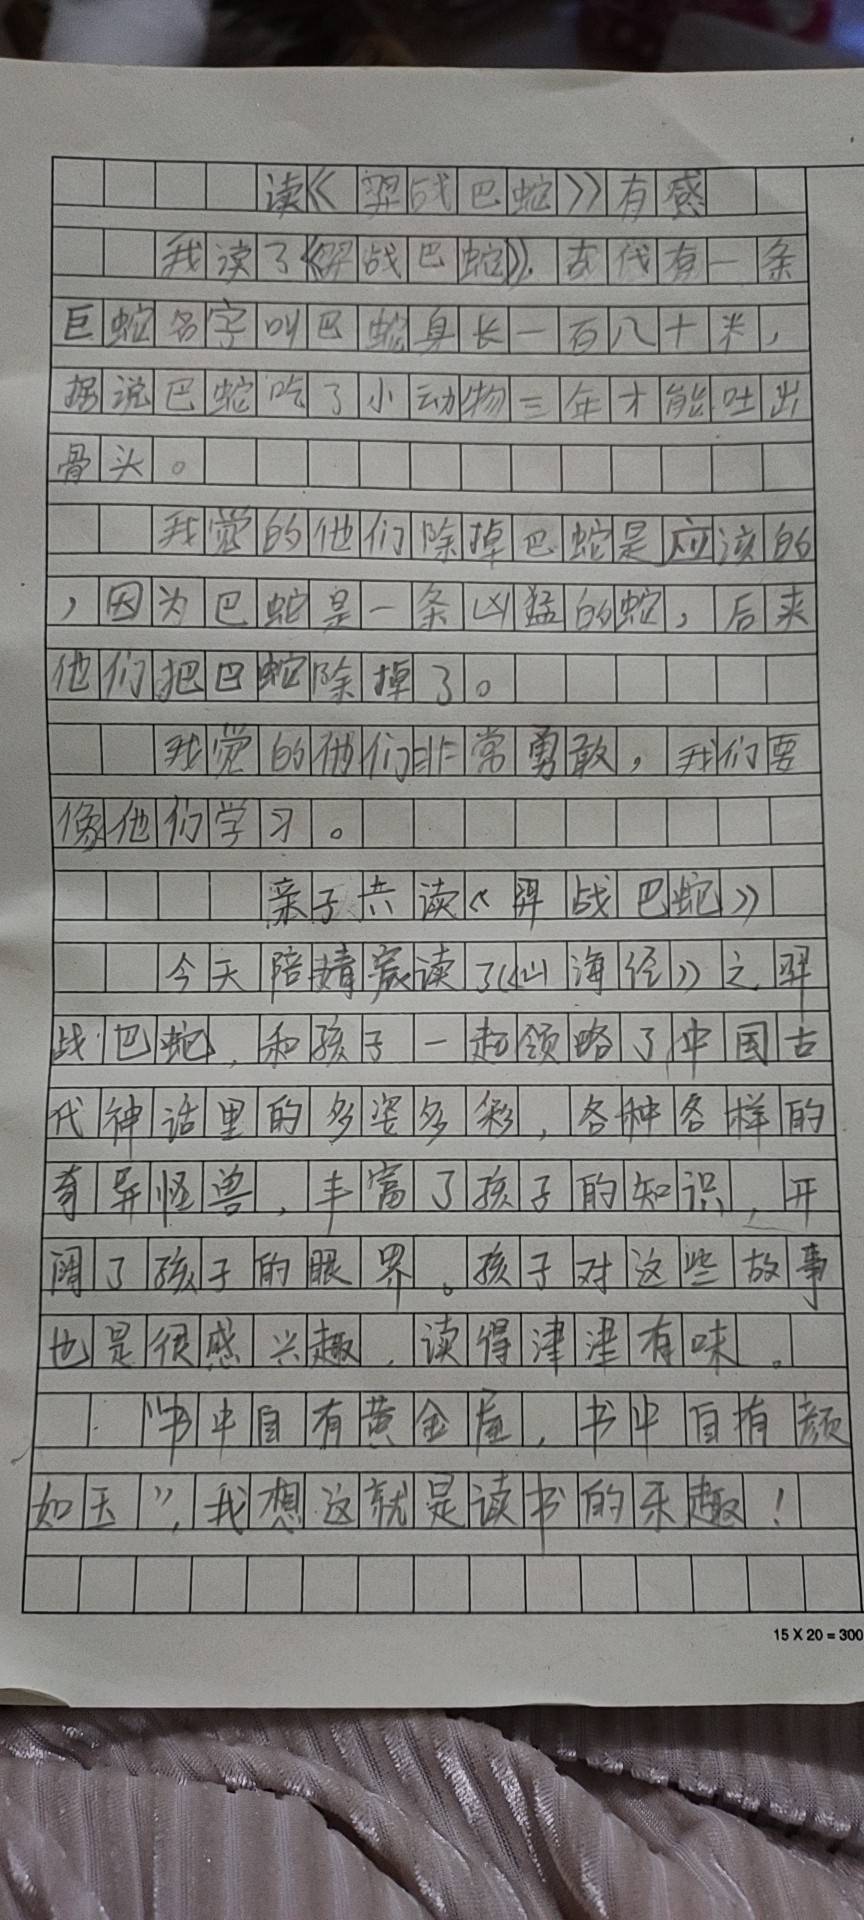 读《羿战巴蛇》有感
我读了《羿战巴蛇》。古代有一条
巨蛇名字叫巴蛇身长一百八十米，
据说巴蛇吃了小动物三年才能吐出
骨头。
我觉的他们除掉巴蛇是应该的
，因为巴蛇是一条凶猛的蛇，后来
他们把巴蛇除掉了。
我觉的他们非常勇敢，我们要
像他们学习。
亲子共读《羿战巴蛇》
今天陪婧宸读了《山海经》之羿
战巴蛇，和孩子一起领略了中国古
代神话里的多姿多彩，各种各样的
奇异怪兽，丰富了孩子的知识，开
阔了孩子的眼界。孩子对这些故事
也是很感兴趣，读得津津有味。
“书中自有黄金屋，书中自有颜
如玉”，我想这就是读书的乐趣！
15 X 20 = 300